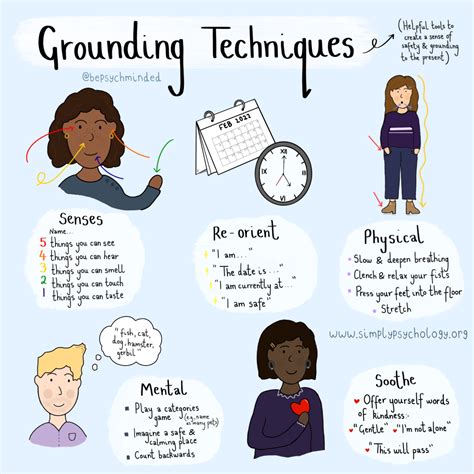 Grounding Techniques
(Helpful tools to
create a sense of
safety & grounding
to the present)
@bepsychminded
FEB 2021
Senses
Name...
5 things you can see
4 things you can hear
3 things you can smell
2 things you can touch
1 things you can taste
Re-orient
"I am...."
"The date is..."
"I am currently at..."
"I am safe"
Physical
Slow & deepen breathing
Clench & relax your fists
Press your feet into the floor
Stretch
www.simplypsychology.org
"fish, cat,
dog, hamster,
gerbil"
Mental
Play a categories
game (e.g. name
as many pets)
Imagine a safe &
calming place
Count backwards
Soothe
Offer yourself words
of kindness:-
"Gentle" "I'm not alone"
"This will pass"